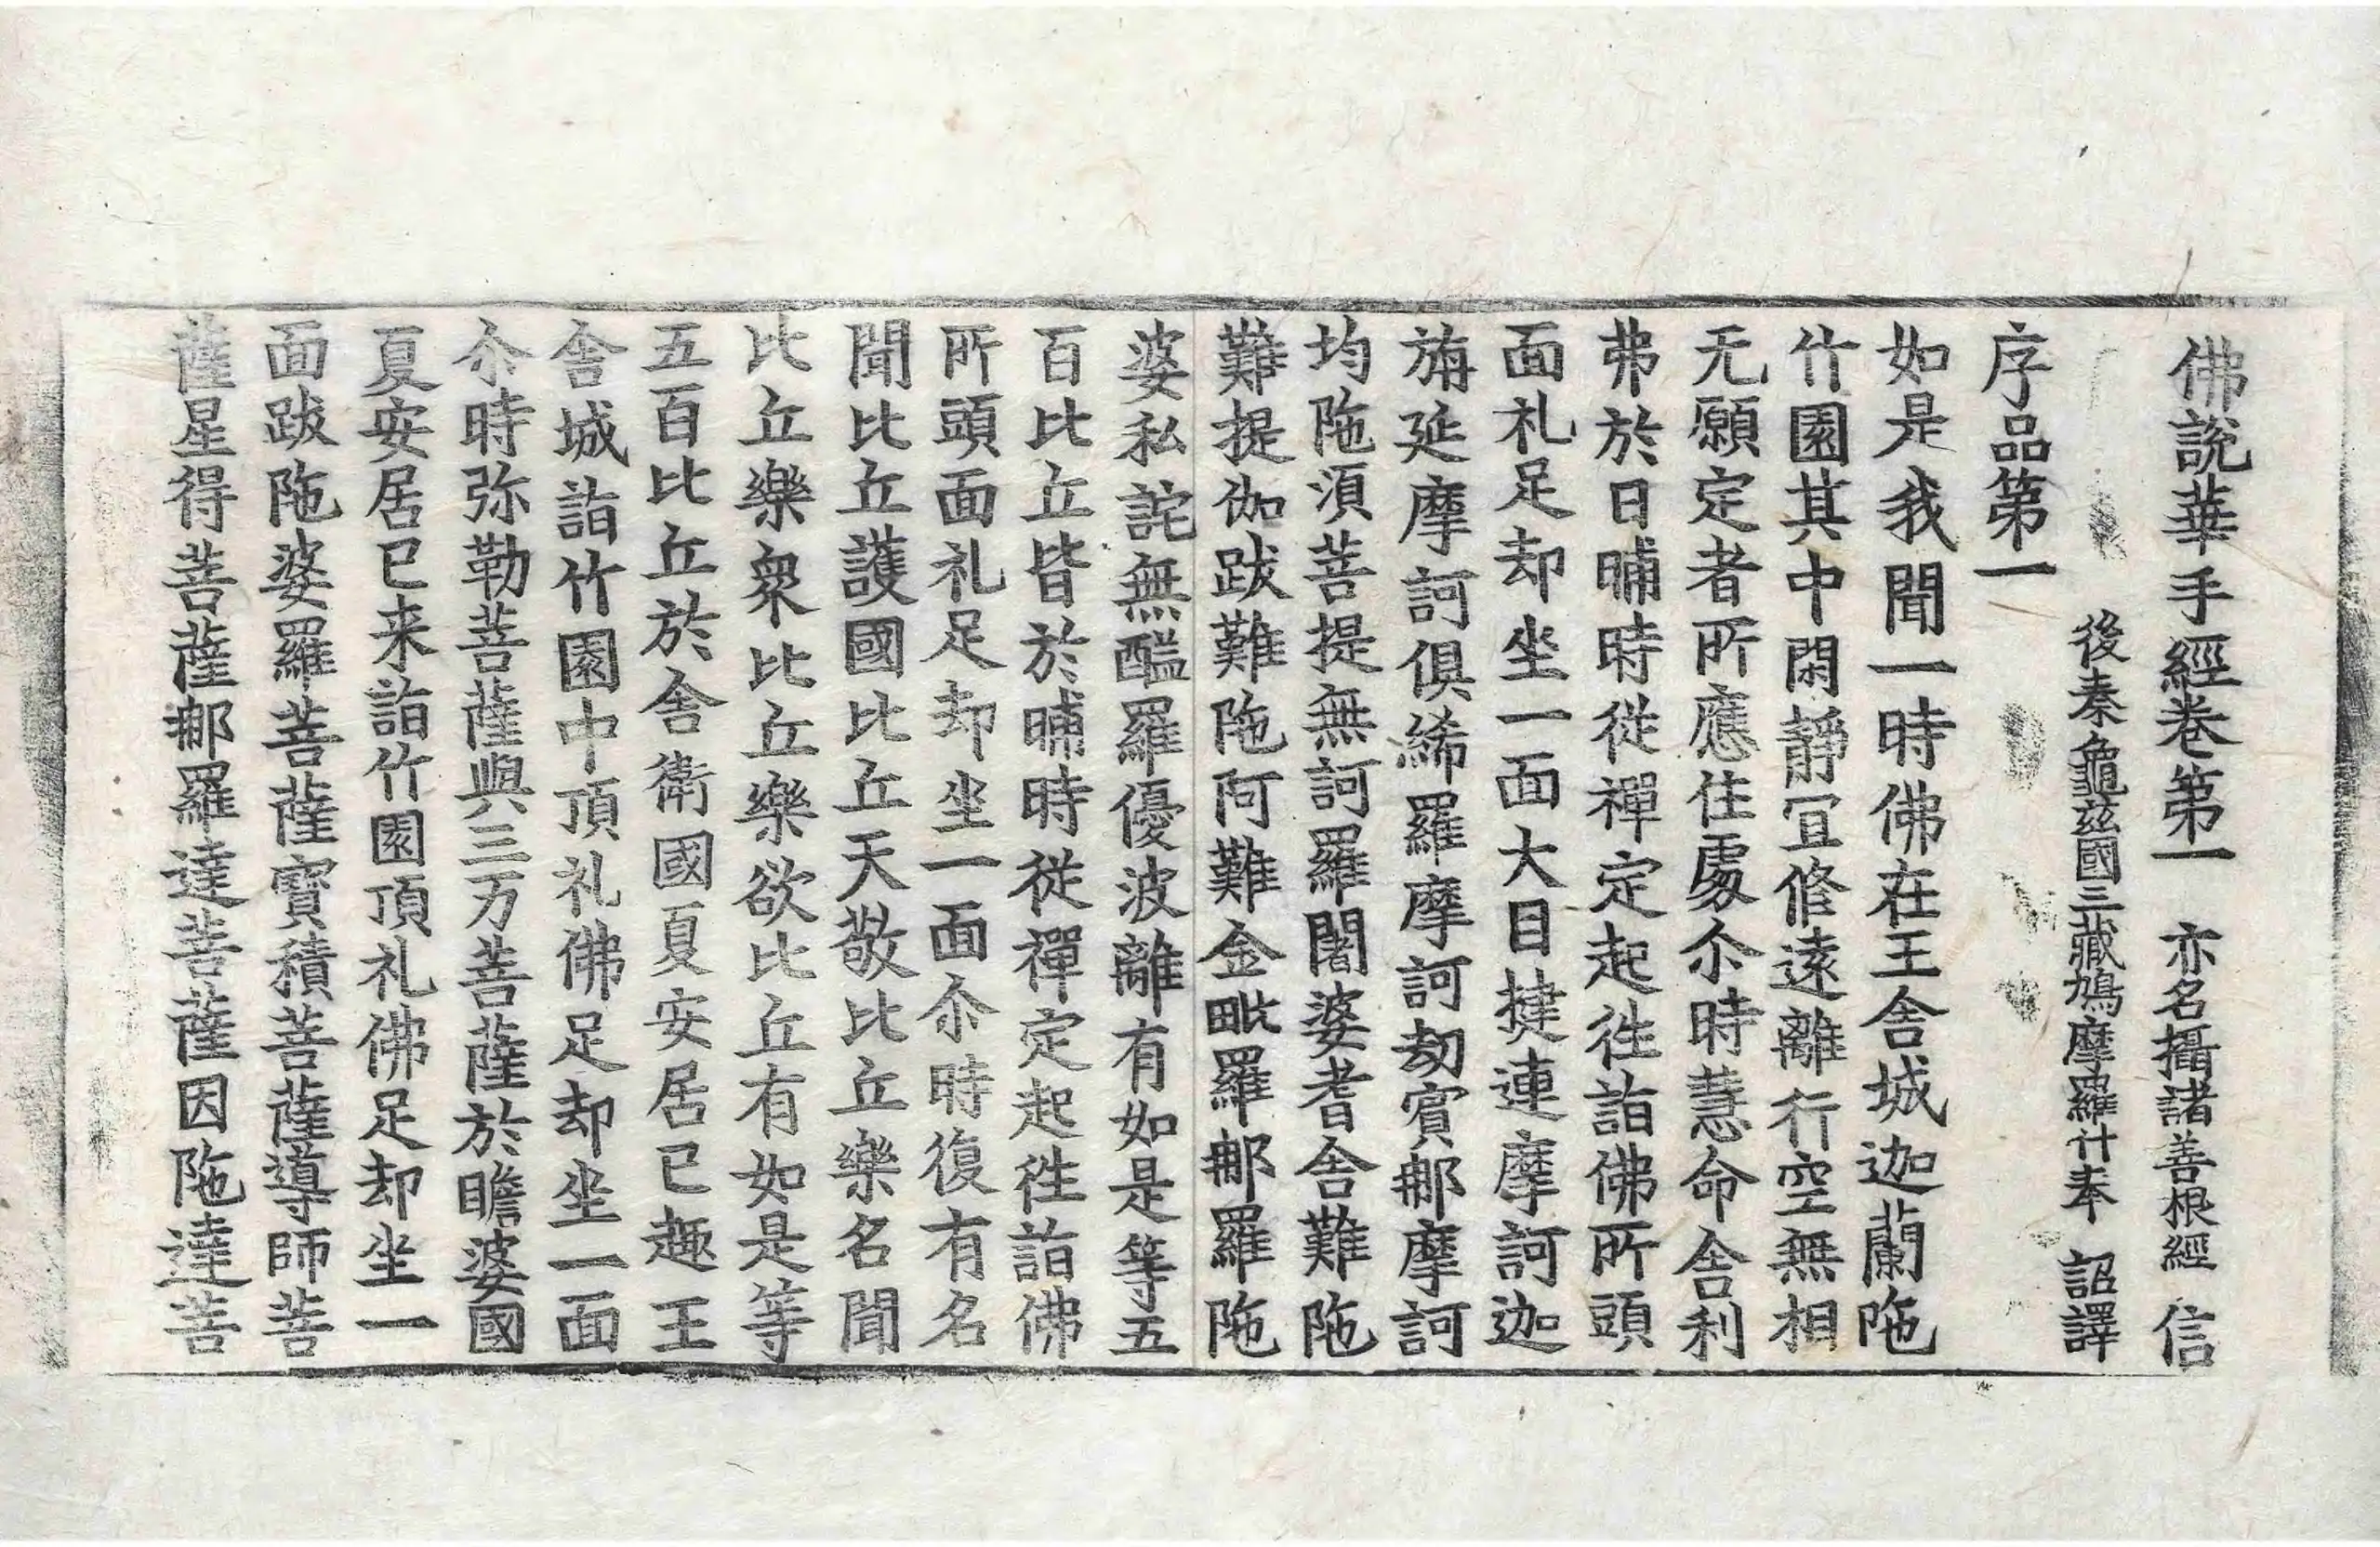 佛說華手經卷第一 亦名攝諸善根經 信
後秦龜茲國三藏鳩摩羅什奉 詔譯
序品第一
如是我聞一時佛在王舍城迦蘭陁
竹園其中閑靜冝修遠離行空無相
无願定者所應住處尒時慧命舍利
弗於日晡時從禪定起往詣佛所頭
面礼足却坐一面大目揵連摩訶迦
旃延摩訶俱絺羅摩訶劫賓𨚗摩訶
均陁湏菩提無訶羅闍婆耆舍難陁
難提伽跋難陁阿難金毗羅𨚗羅陁
婆私詫無醯羅優波離有如是等五
百比丘皆於晡時從禪定起徃詣佛
所頭面礼足却坐一面尒時復有名
聞比丘護國比丘天敬比丘樂名聞
比丘樂衆比丘樂欲比丘有如是等
五百比丘於舍衛國夏安居已趣王
舍城詣竹園中頂礼佛足却坐一面
尒時弥勒菩薩與三万菩薩於瞻婆國
夏安居已来詣竹園頂礼佛足却坐一
面跋陁婆羅菩薩寶積菩薩導師菩
薩星得菩薩𨚗羅達菩薩因陁達菩